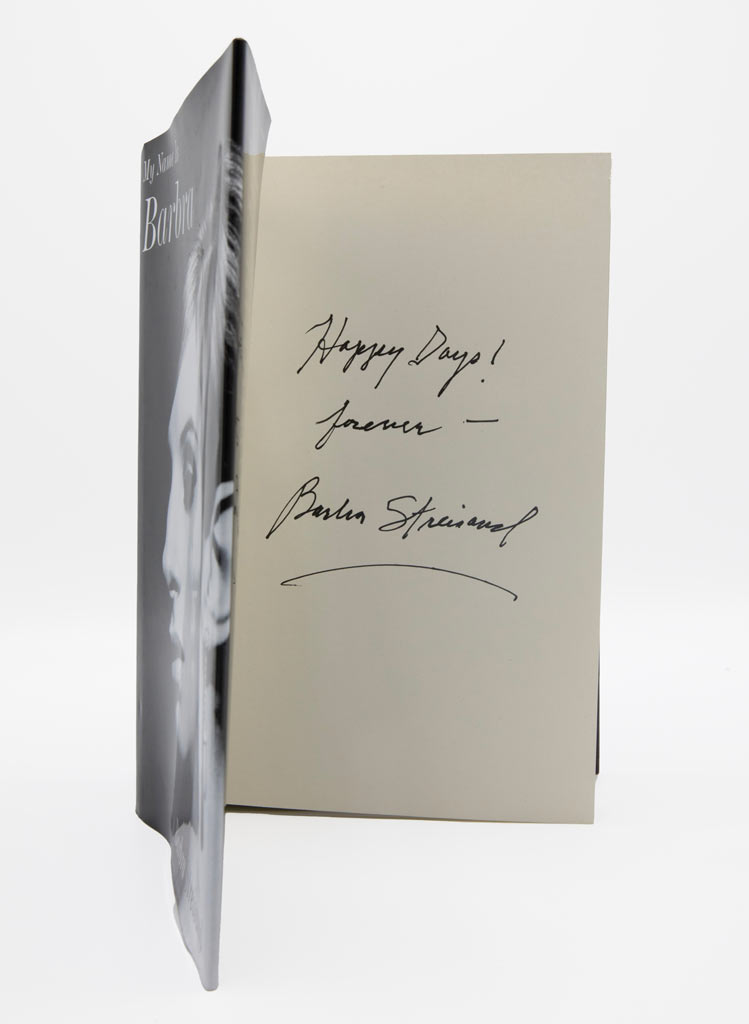 My Name Is
Barbra
Happy Days!
forever —
Barbra Streisand